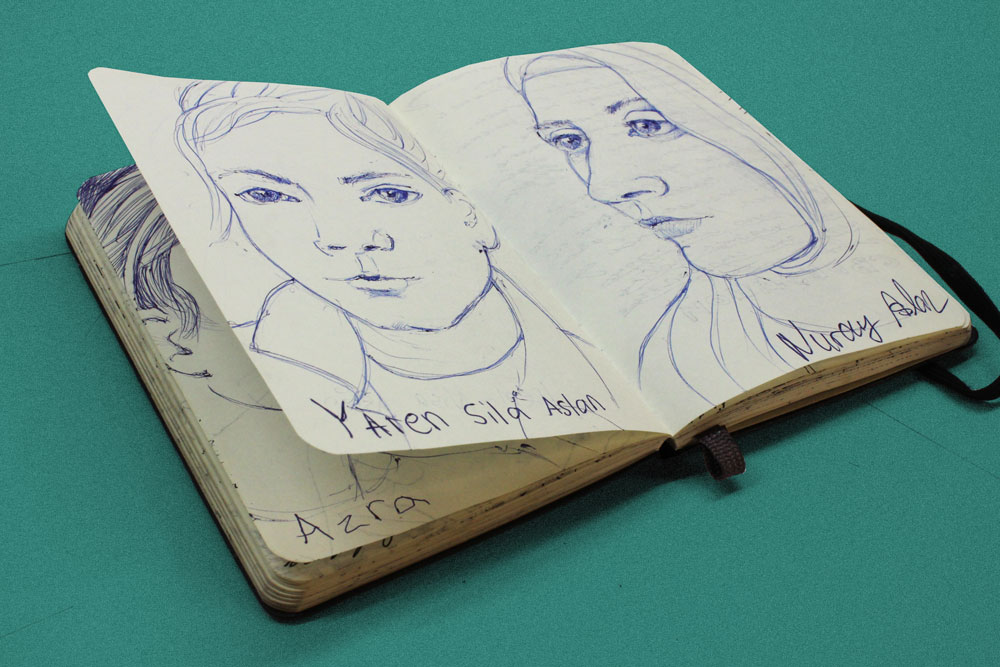 YAren Sila Aslan
Nuray Aslan
Azra